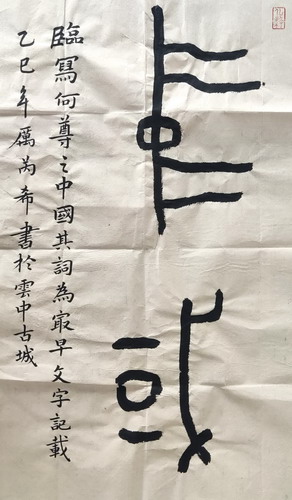 中或
臨寫何尊之中國其詞為冣早文字記載
乙巳年厲芮希書於雲中古城